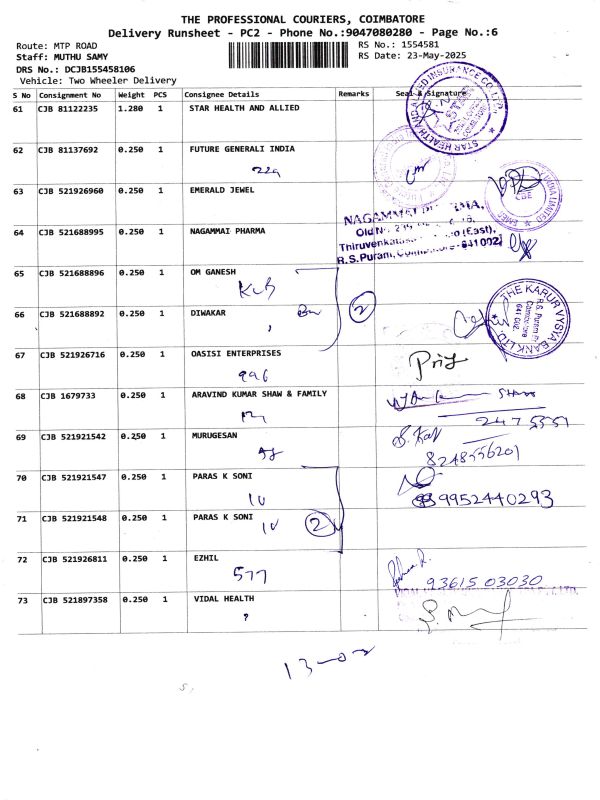 THE PROFESSIONAL COURIERS, COIMBATORE
Delivery Runsheet - PC2 - Phone No.:9047080280 - Page No.:6
Route: MTP ROAD
RS No.: 1554581
Staff: MUTHU SAMY
RS Date: 23-May-2025
DRS No.: DCJB155458106
Vehicle: Two Wheeler Delivery
S No Consignment No Weight PCS Consignee Details Remarks Seal & Signature
61 CJB 81122235 1.280 1 STAR HEALTH AND ALLIED
STAR HEALTH AND ALLIED INSURANCE CO. LTD.
62 CJB 81137692 0.250 1 FUTURE GENERALI INDIA
229
63 CJB 521926960 0.250 1 EMERALD JEWEL
CBE
64 CJB 521688995 0.250 1 NAGAMMAI PHARMA
NAGAMMAI
Old No. 
Thiruvenkatasamy (East),
R.S.Puram, Coimbatore - 641 002
65 CJB 521688896 0.250 1 OM GANESH
KVB
2
66 CJB 521688892 0.250 1 DIWAKAR
THE KARUR VYSYA BANK LTD.
R.S. Puram
Coimbatore
641 002
67 CJB 521926716 0.250 1 OASISI ENTERPRISES
996
68 CJB 1679733 0.250 1 ARAVIND KUMAR SHAW & FAMILY
69 CJB 521921542 0.250 1 MURUGESAN
8248556201
70 CJB 521921547 0.250 1 PARAS K SONI
9952440293
71 CJB 521921548 0.250 1 PARAS K SONI
2
72 CJB 521926811 0.250 1 EZHIL
577
93615 03030
73 CJB 521897358 0.250 1 VIDAL HEALTH
?